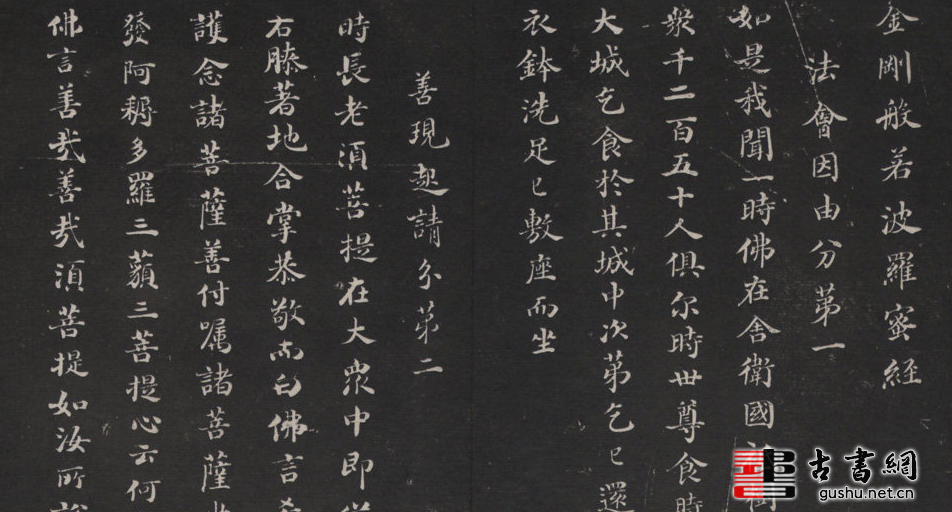 金剛般若波羅蜜經
法會因由分第一
如是我聞一時佛在舍衛國
眾千二百五十人俱尔時世尊食時
大城乞食於其城中次第乞已還
衣鉢洗足已敷座而坐
善現起請分第二
時長老須菩提在大眾中即從
右膝著地合掌恭敬而白佛言希
護念諸菩薩善付嘱諸菩薩世
發阿耨多羅三藐三菩提心云何
佛言善哉善哉須菩提如汝所說
古書網
gushu.net.cn